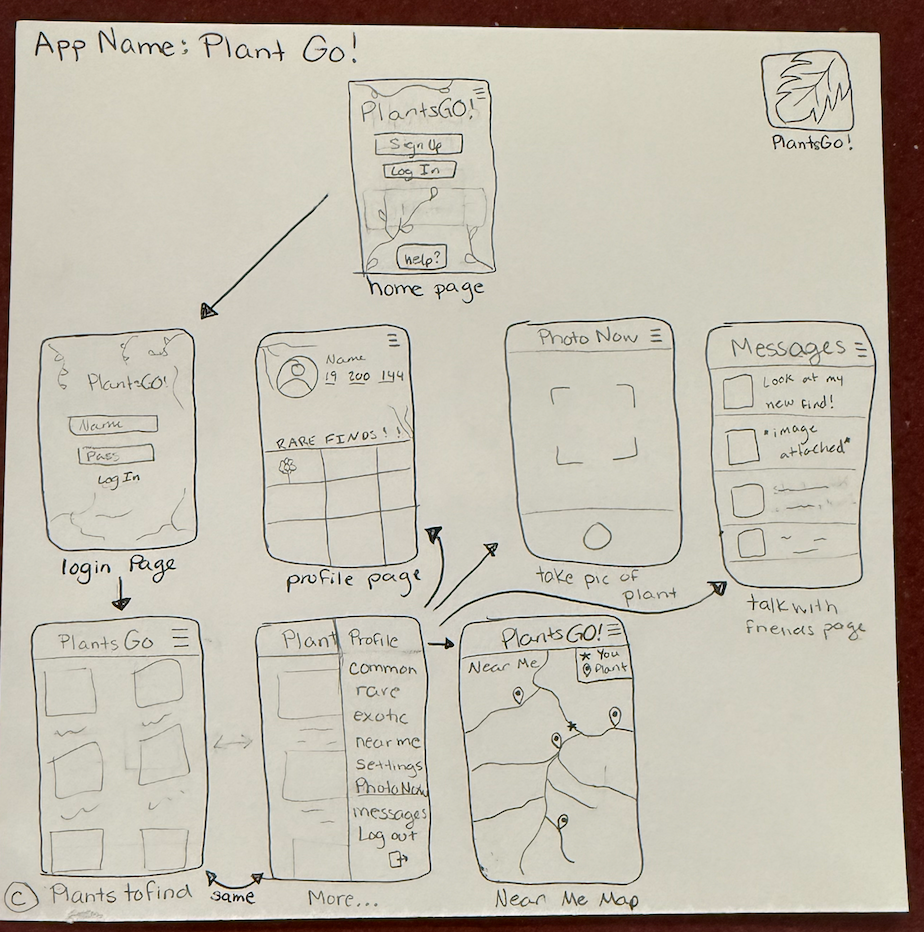 App Name: Plant Go!
PlantsGo!
PlantsGO!
Sign Up
Log In
help?
home page
PlantsGO!
Name
Pass
Log In
login Page
Name
19 200 144
RARE FINDS!!
profile page
Photo Now
take pic of
plant
Messages
Look at my
new find!
*image
attached*
talk with
friends page
Plants Go
C Plants to find
same
Plant
Profile
common
rare
exotic
near me
settings
Photo Now
messages
Log out
More...
PlantsGO!
Near Me
* You
Plant
Near Me Map